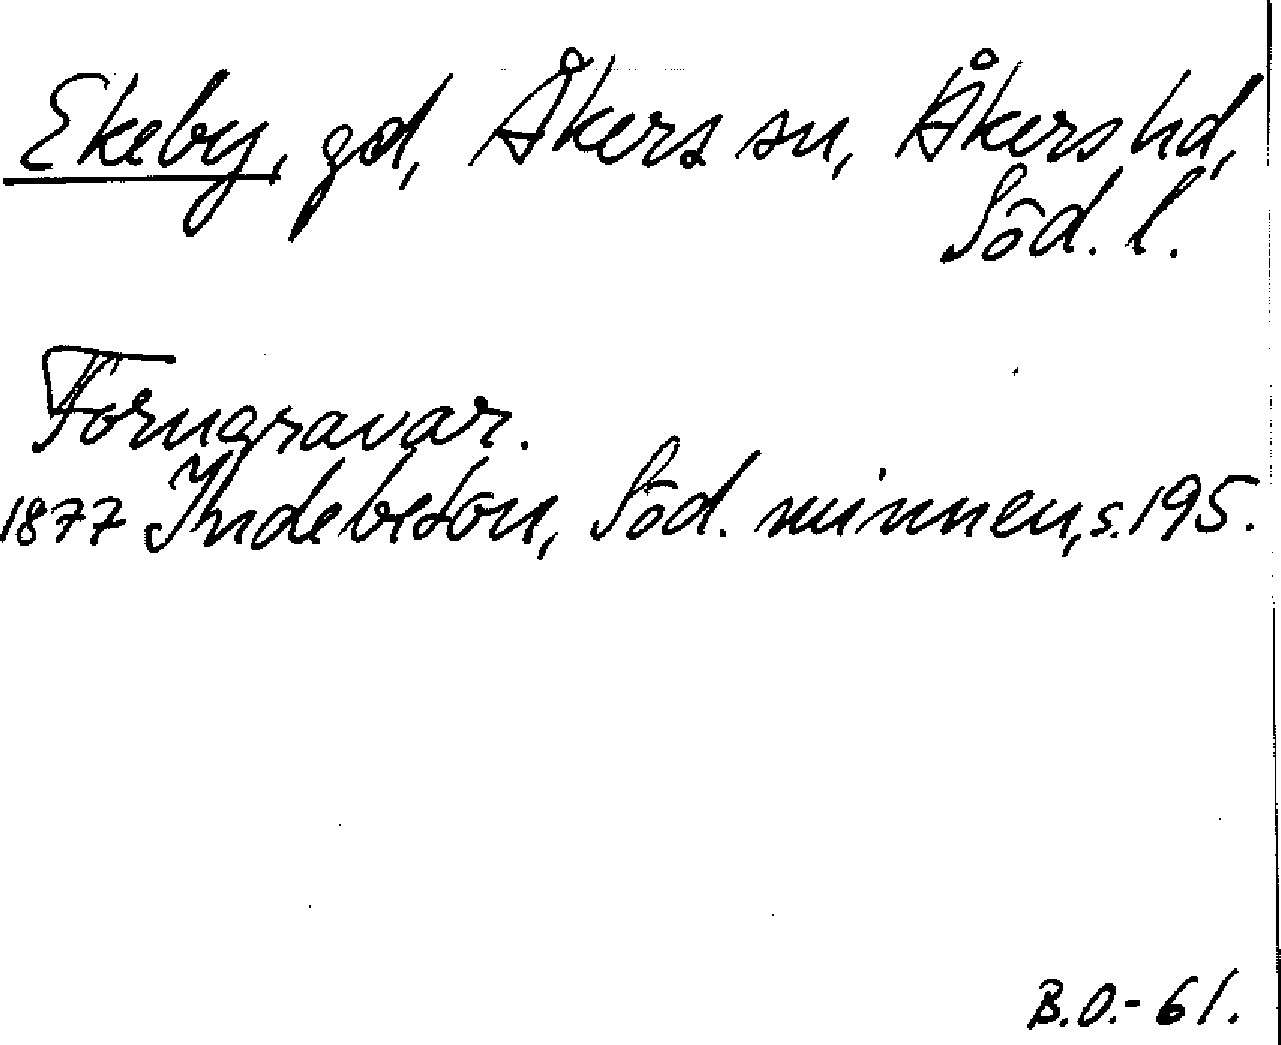 Ekeby, gd, Åkers sn, Åkers hd,
Söd. l.
Forngravar.
1877 Indebetou, Söd. minnen, s. 195.
B.O.- 61.